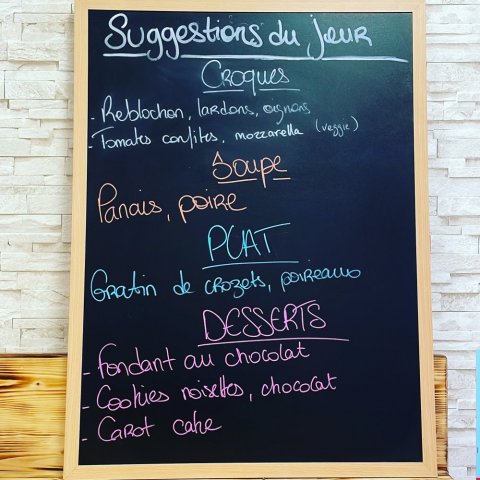 Suggestions du jour
Croques
- Reblochon, lardons, oignons
- Tomates confites, mozzarella (veggie)
Soupe
Panais, poire
PLAT
Gratin de crozets, poireaux
DESSERTS
- Fondant au chocolat
- Cookies noisettes, chocolat
- Carot cake